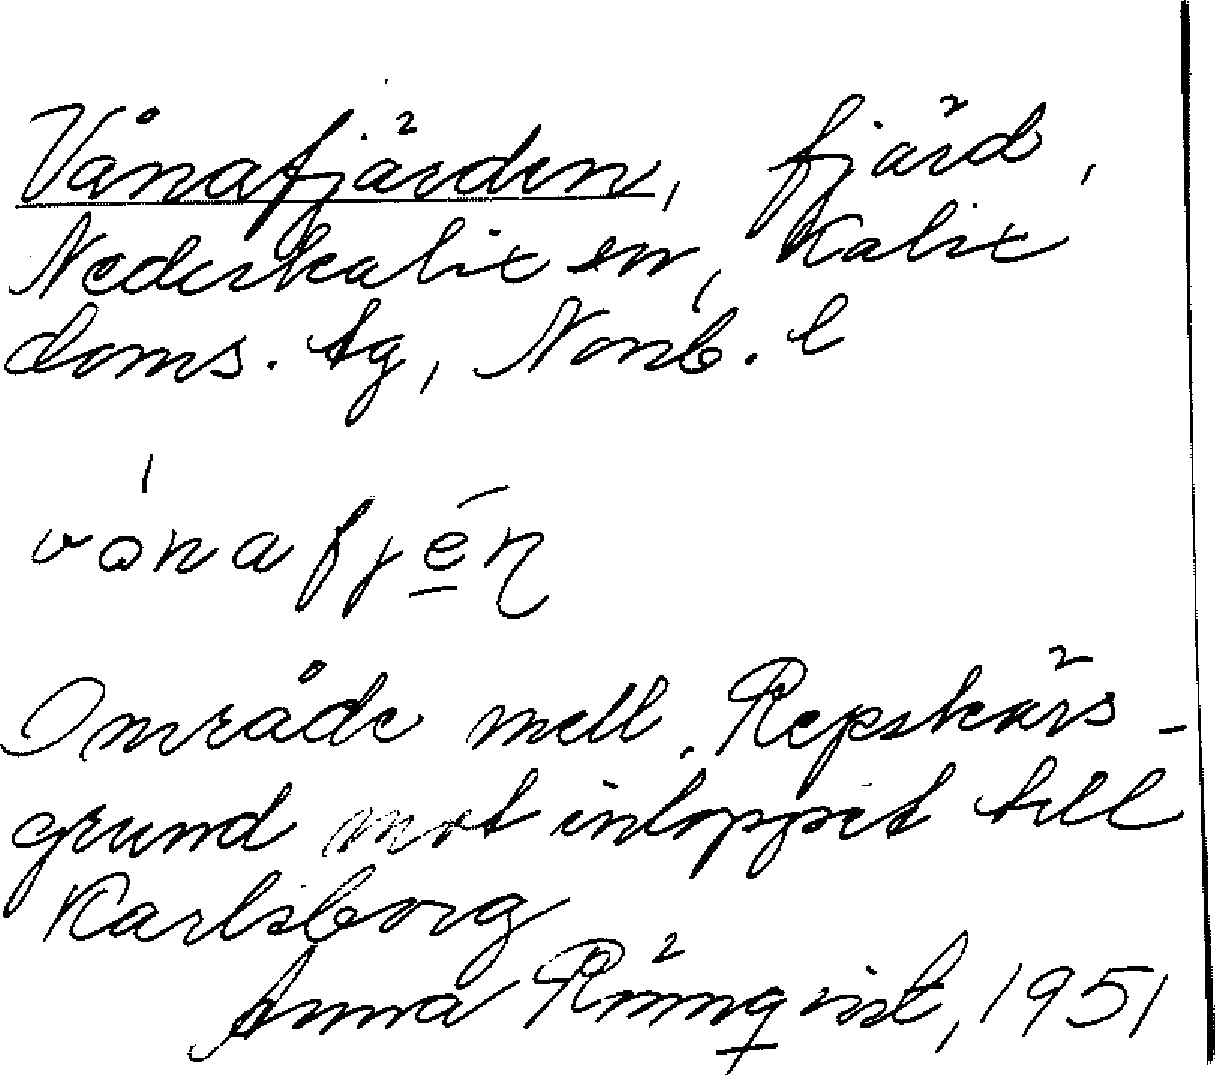 Vånafjärden, fjärd,
Nederkalix sn, Kalix
doms. tg, Norrb. l
vånafjén
Område mell. Repskärs-
grund mot inloppet till
Karlsborg
Anna Rönnqvist, 1951